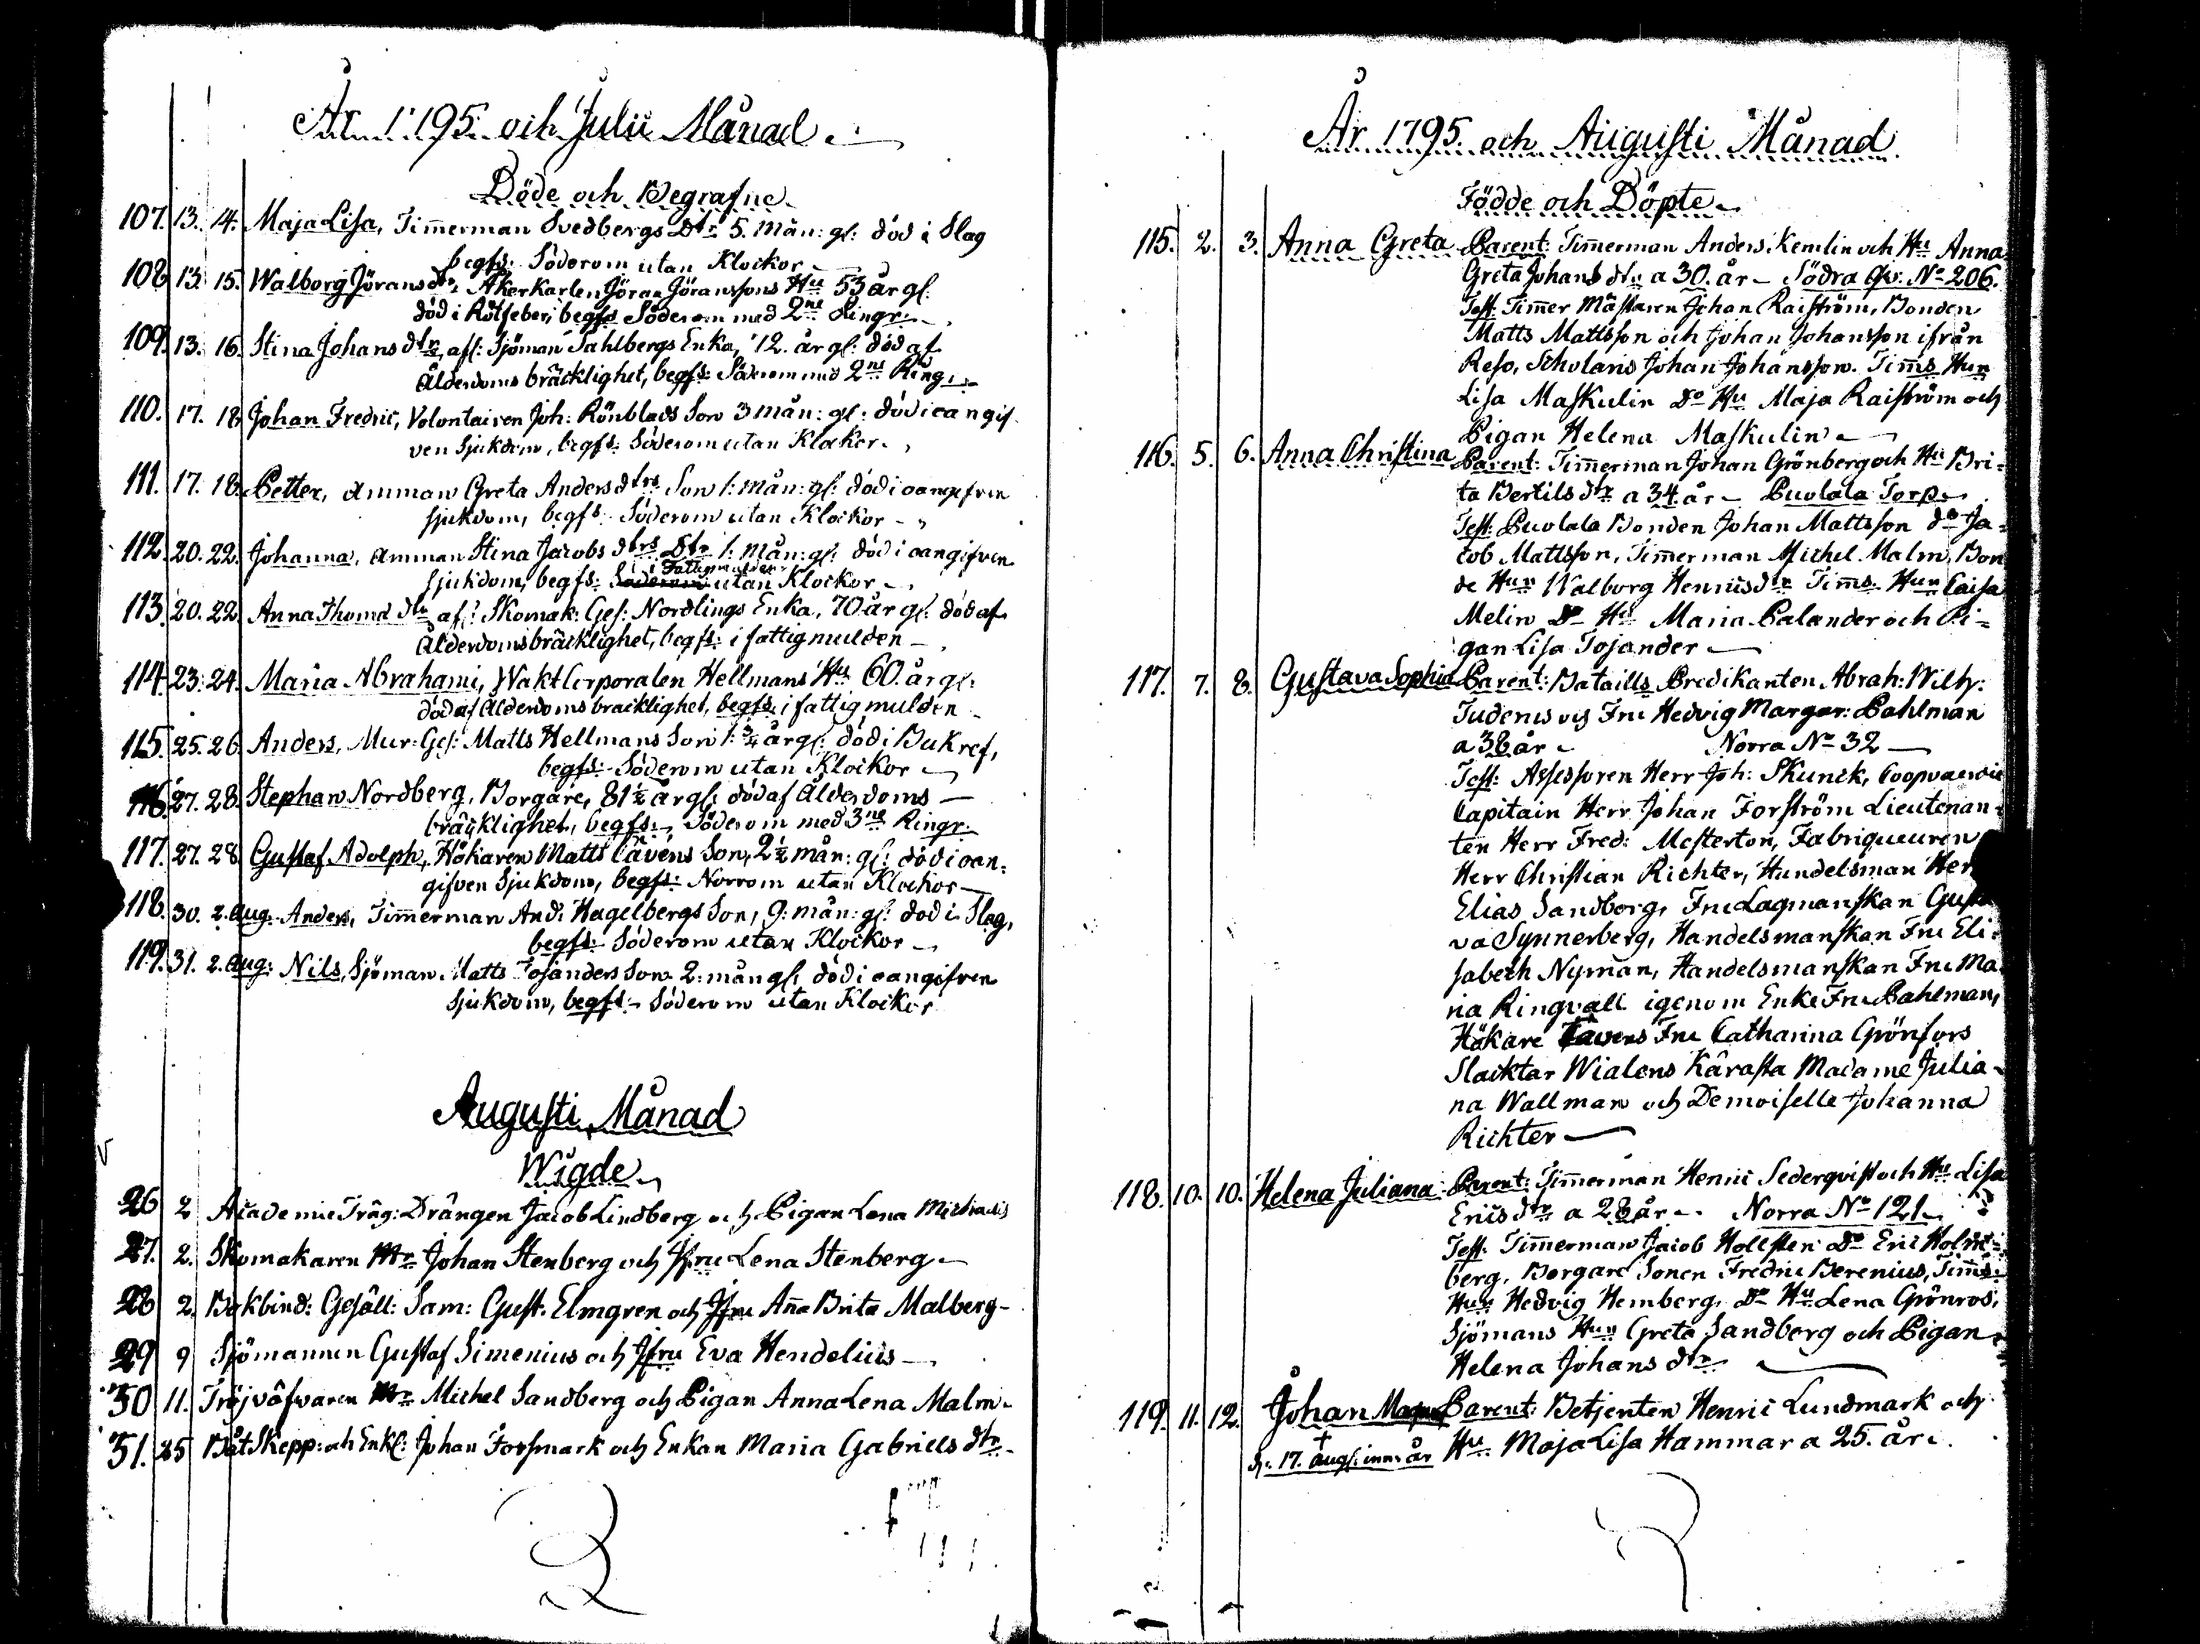 År 1795 och Julii Månad
Döde och Begrafne
107. 13. 14. Maja Lisa, Timmerman Svedbergs Dtr 5. mån: gl: död i Slag
begfs: Söderom utan Klockor
108 13. 15. Walborg Jörans dtr, Åkerkarlen Jöran Jöranssons Hu 53 år gl:
död i Rötfeber, begfs Söderom med 2ne Ringr.
109. 13. 16. Stina Johans dtr, afl: Sjöman Sahlbergs Enka, 72. år gl: död af
Ålderdoms bräcklighet, begfs: Söderom med 2ne Ring.
110. 17. 18 Johan Fredric, Volontairen Joh: Rönblads Son 3 mån: gl: död i oangif
ven Sjukdom, begfs: Söderom utan Klockor.
111. 17. 18. Petter, Amman Greta Anders dtrs Son 1: mån: gl: död i oangifven
sjukdom, begfs: Söderom utan Klockor
112. 20. 22. Johanna, Amman Stina Jacobs dtrs Dtr 1: mån: gl: död i oangifven
i Fattigmulden
sjukdom, begfs: Söderom utan Klockor
113. 20. 22. Anna Thomæ dtr afl: Skomak: Ges: Nordlings Enka, 70 år gl: död af
Ålderdomsbräcklighet, begfs: i fattigmulden
114. 23. 24. Maria Abrahami, Wakt Corporalen Hellmans Hu 60. år gl:
död af Ålderdoms bräcklighet, begfs: i fattigmulden
115. 25. 26. Anders, Mur: Ges: Matts Hellmans Son 1: 3/4 år gl: död i Bukref,
begfs: Söderom utan Klockor
116. 27. 28. Stephan Nordberg, Borgare, 81 1/2 år gl: död af Ålderdoms
bräcklighet, begfs: Söderom med 3ne Ringr.
117. 27. 28. Gustaf Adolph, Hökaren Matts Cavéns Son, 2 1/2 mån: gl: död i oan=
gifven Sjukdom, begfs: Norrom utan Klockor
118. 30. 2. Aug. Anders, Timmerman And: Hagelbergs Son, 9: mån: gl: död i Slag,
begfs: Söderom utan Klockor
119. 31. 2. Aug: Nils, Sjöman Matts Tojanders Son 2: mån gl: död i oangifven
Sjukdom, begfs: Söderom utan Klockor
Augusti Månad
Wigde
26 2 Academie Träg: Drängen Jacob Lindberg och Pigan Lena Michaelis
27. 2. Skomakaren Mr Johan Stenberg och Jfru Lena Stenberg
28 2. Bokbind: Gesäll: Sam: Gust. Elmgren och Jfru Anna Brita Malberg
29 9 Sjömannen Gustaf Simenius och Jfru Eva Hendelius
30 11. Tröjväfvaren Mr Michel Sandberg och Pigan Anna Lena Malm
31. 25 Båt Skepp: och Enkl: Johan Forsmark och Enkan Maria Gabriels dtr
År 1795. och Augusti Månad
Födde och Döpte
115. 2. 3. Anna Greta Parent: Timmerman Anders Kemlin och Hu Anna
Greta Johans dtr a 30. år Södra Qv. No 206.
Test: Timmer Mästaren Johan Raiström, Bonden
Matts Mattsson och Johan Johansson ifrån
Reso, Scholaris Johan Johansson. Timms Hun
Lisa Maskulin Do Hu Maja Raiström och
Pigan Helena Maskulin
116. 5. 6. Anna Christina Parent: Timmerman Johan Grönberg och Hu Bri=
ta Bertils dtr a 34. år Puolala Torp
Test: Puolala Bonden Johan Mattsson do Ja=
cob Mattsson, Timmerman Michel Malm, Bon
de Hun Walborg Henricsdtr Timms. Hun Caisa
Melin Do Hu Maria Palander och Pi=
gan Lisa Tojander
117. 7. 8. Gustava Sophia Parent: Bataills Predikanten Abrah: Wilh:
Judenis och Fru Hedvig Margar: Pahlman
a 38 år Norra No 32
Test: Assessoren Herr Joh: Skunck, Coopvaerdie
Capitain Herr Johan Forström Lieutenan=
ten Herr Fred: Mesterton, Fabriqueuren
Herr Christian Richter, Handelsman Her
Elias Sandborg, Fru Lagmanskan Gusta
va Synnerberg, Handelsmanskan Fru Eli=
sabeth Nyman, Handelsmanskan Fru Ma
ria Ringvall igenom Enke Fru Pahlman,
Hökare Cavens Fru Catharina Grönfors
Slacktar Wialens Kärasta Madame Julia=
na Wallman och Demoiselle Johanna
Richter
118. 10. 10. Helena Juliana Parent: Timmerman Henric Sederqvist och Hu Lisa
Erics dtr a 28 år Norra No 121
Test: Timmerman Jacob Hollsten Do Eric Holm=
berg, Borgare Sonen Fredric Berenius, Timms
Hun Hedvig Hemberg, Do Hu Lena Grönros,
Sjömans Hun Greta Sandberg och Pigan
Helena Johans dtr
119. 11. 12. Johan Magnus Parent: Betjenten Henric Lundmark och
Hu Maja Lisa Hammar a 25. år.
†
d. 17. Aug: innev. år